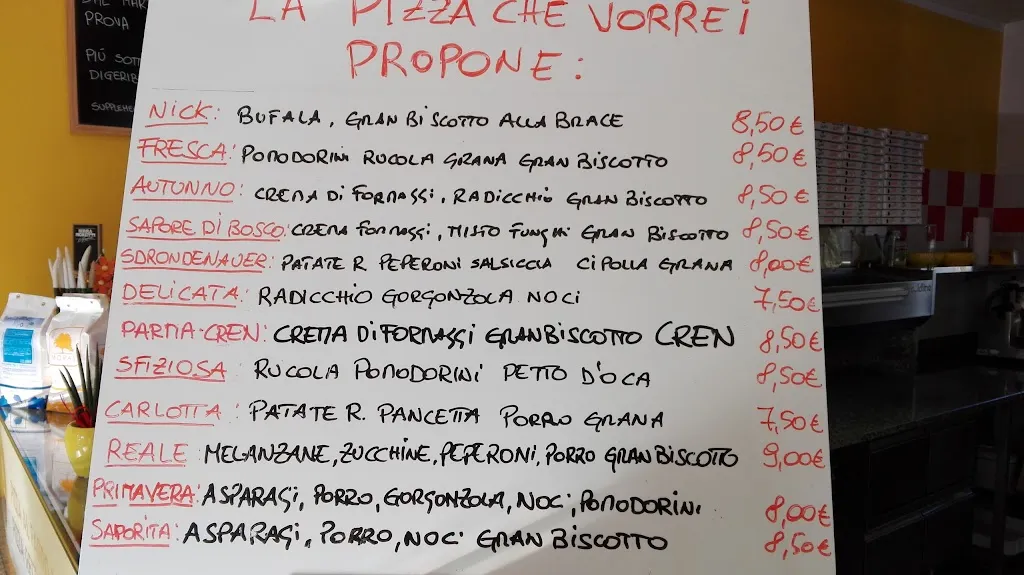 PROVA
PIÚ SOTT
DIGERIB
SUPPLEME
LA PIZZA CHE VORREI
PROPONE:
NICK: BUFALA, GRAN BISCOTTO ALLA BRACE 8,50 €
FRESCA: POMODORINI RUCOLA GRANA GRAN BISCOTTO 8,50 €
AUTUNNO: CREMA DI FORMAGGI, RADICCHIO GRAN BISCOTTO 8,50 €
SAPORE DI BOSCO: CREMA FORMAGGI, MISTO FUNGHI GRAN BISCOTTO 8,50 €
SDRONDENAUER: PATATE R PEPERONI SALSICCIA CIPOLLA GRANA 8,00 €
DELICATA: RADICCHIO GORGONZOLA NOCI 7,50 €
PARMA-CREN: CREMA DI FORMAGGI GRAN BISCOTTO CREN 8,50 €
SFIZIOSA: RUCOLA POMODORINI PETTO D'OCA 8,50 €
CARLOTTA: PATATE R. PANCETTA PORRO GRANA 7,50 €
REALE: MELANZANE, ZUCCHINE, PEPERONI, PORRO GRAN BISCOTTO 9,00 €
PRIMAVERA: ASPARAGI, PORRO, GORGONZOLA, NOCI, POMODORINI 8,00 €
SAPORITA: ASPARAGI, PORRO, NOCI GRAN BISCOTTO 8,50 €